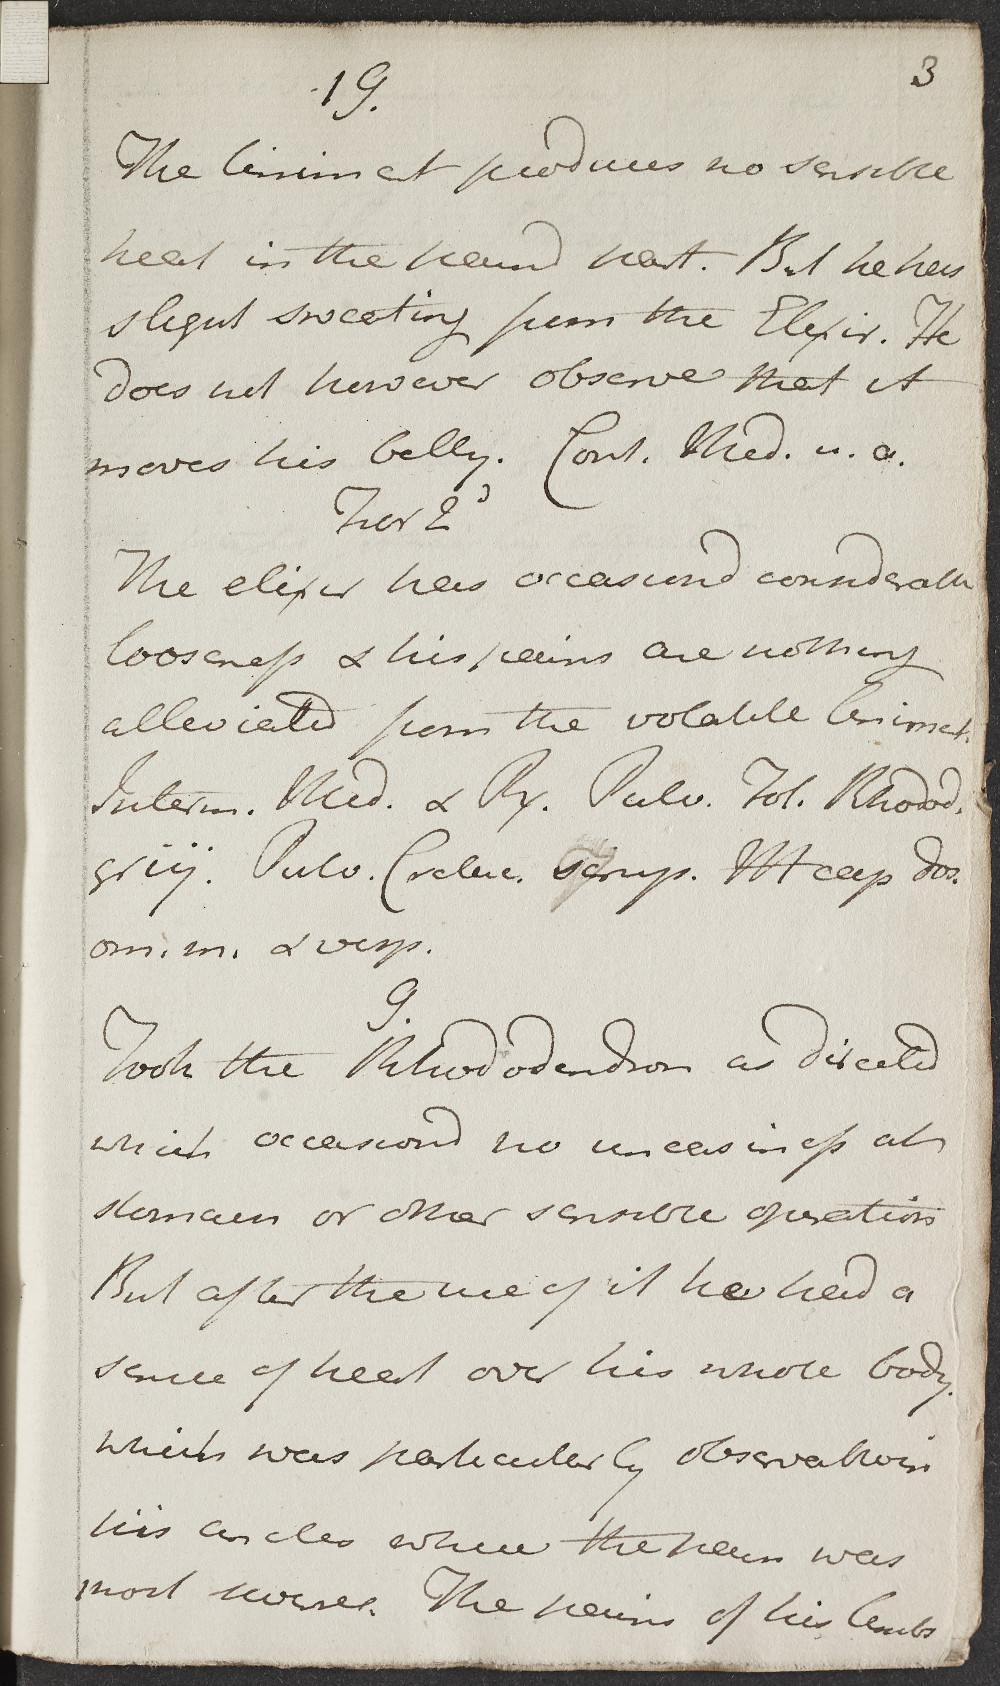 3
19.
The liniment produces no sensible
heat in the pained part. But he has
slight sweating from the Elixir. He
does not however observe that it
moves his belly. Cont. Med. u. a.
The elixir has occasiond considerable
looseness & his pains are nothing
alleviated from the volatile liniment.
Interm. Med. & Rx. Pulv. Fol. Rhodod.
griij. Pulv. Cretae. scrup. M cap dos.
om. m. & vesp.
9.
Took the Rhododendron as directed
which occasiond no uneasiness at
stomach or other sensible operation
But after the use of it he had a
sense of heat over his whole body.
which was particularly observable in
his ancles where the pain was
most severe. The pains of his limbs